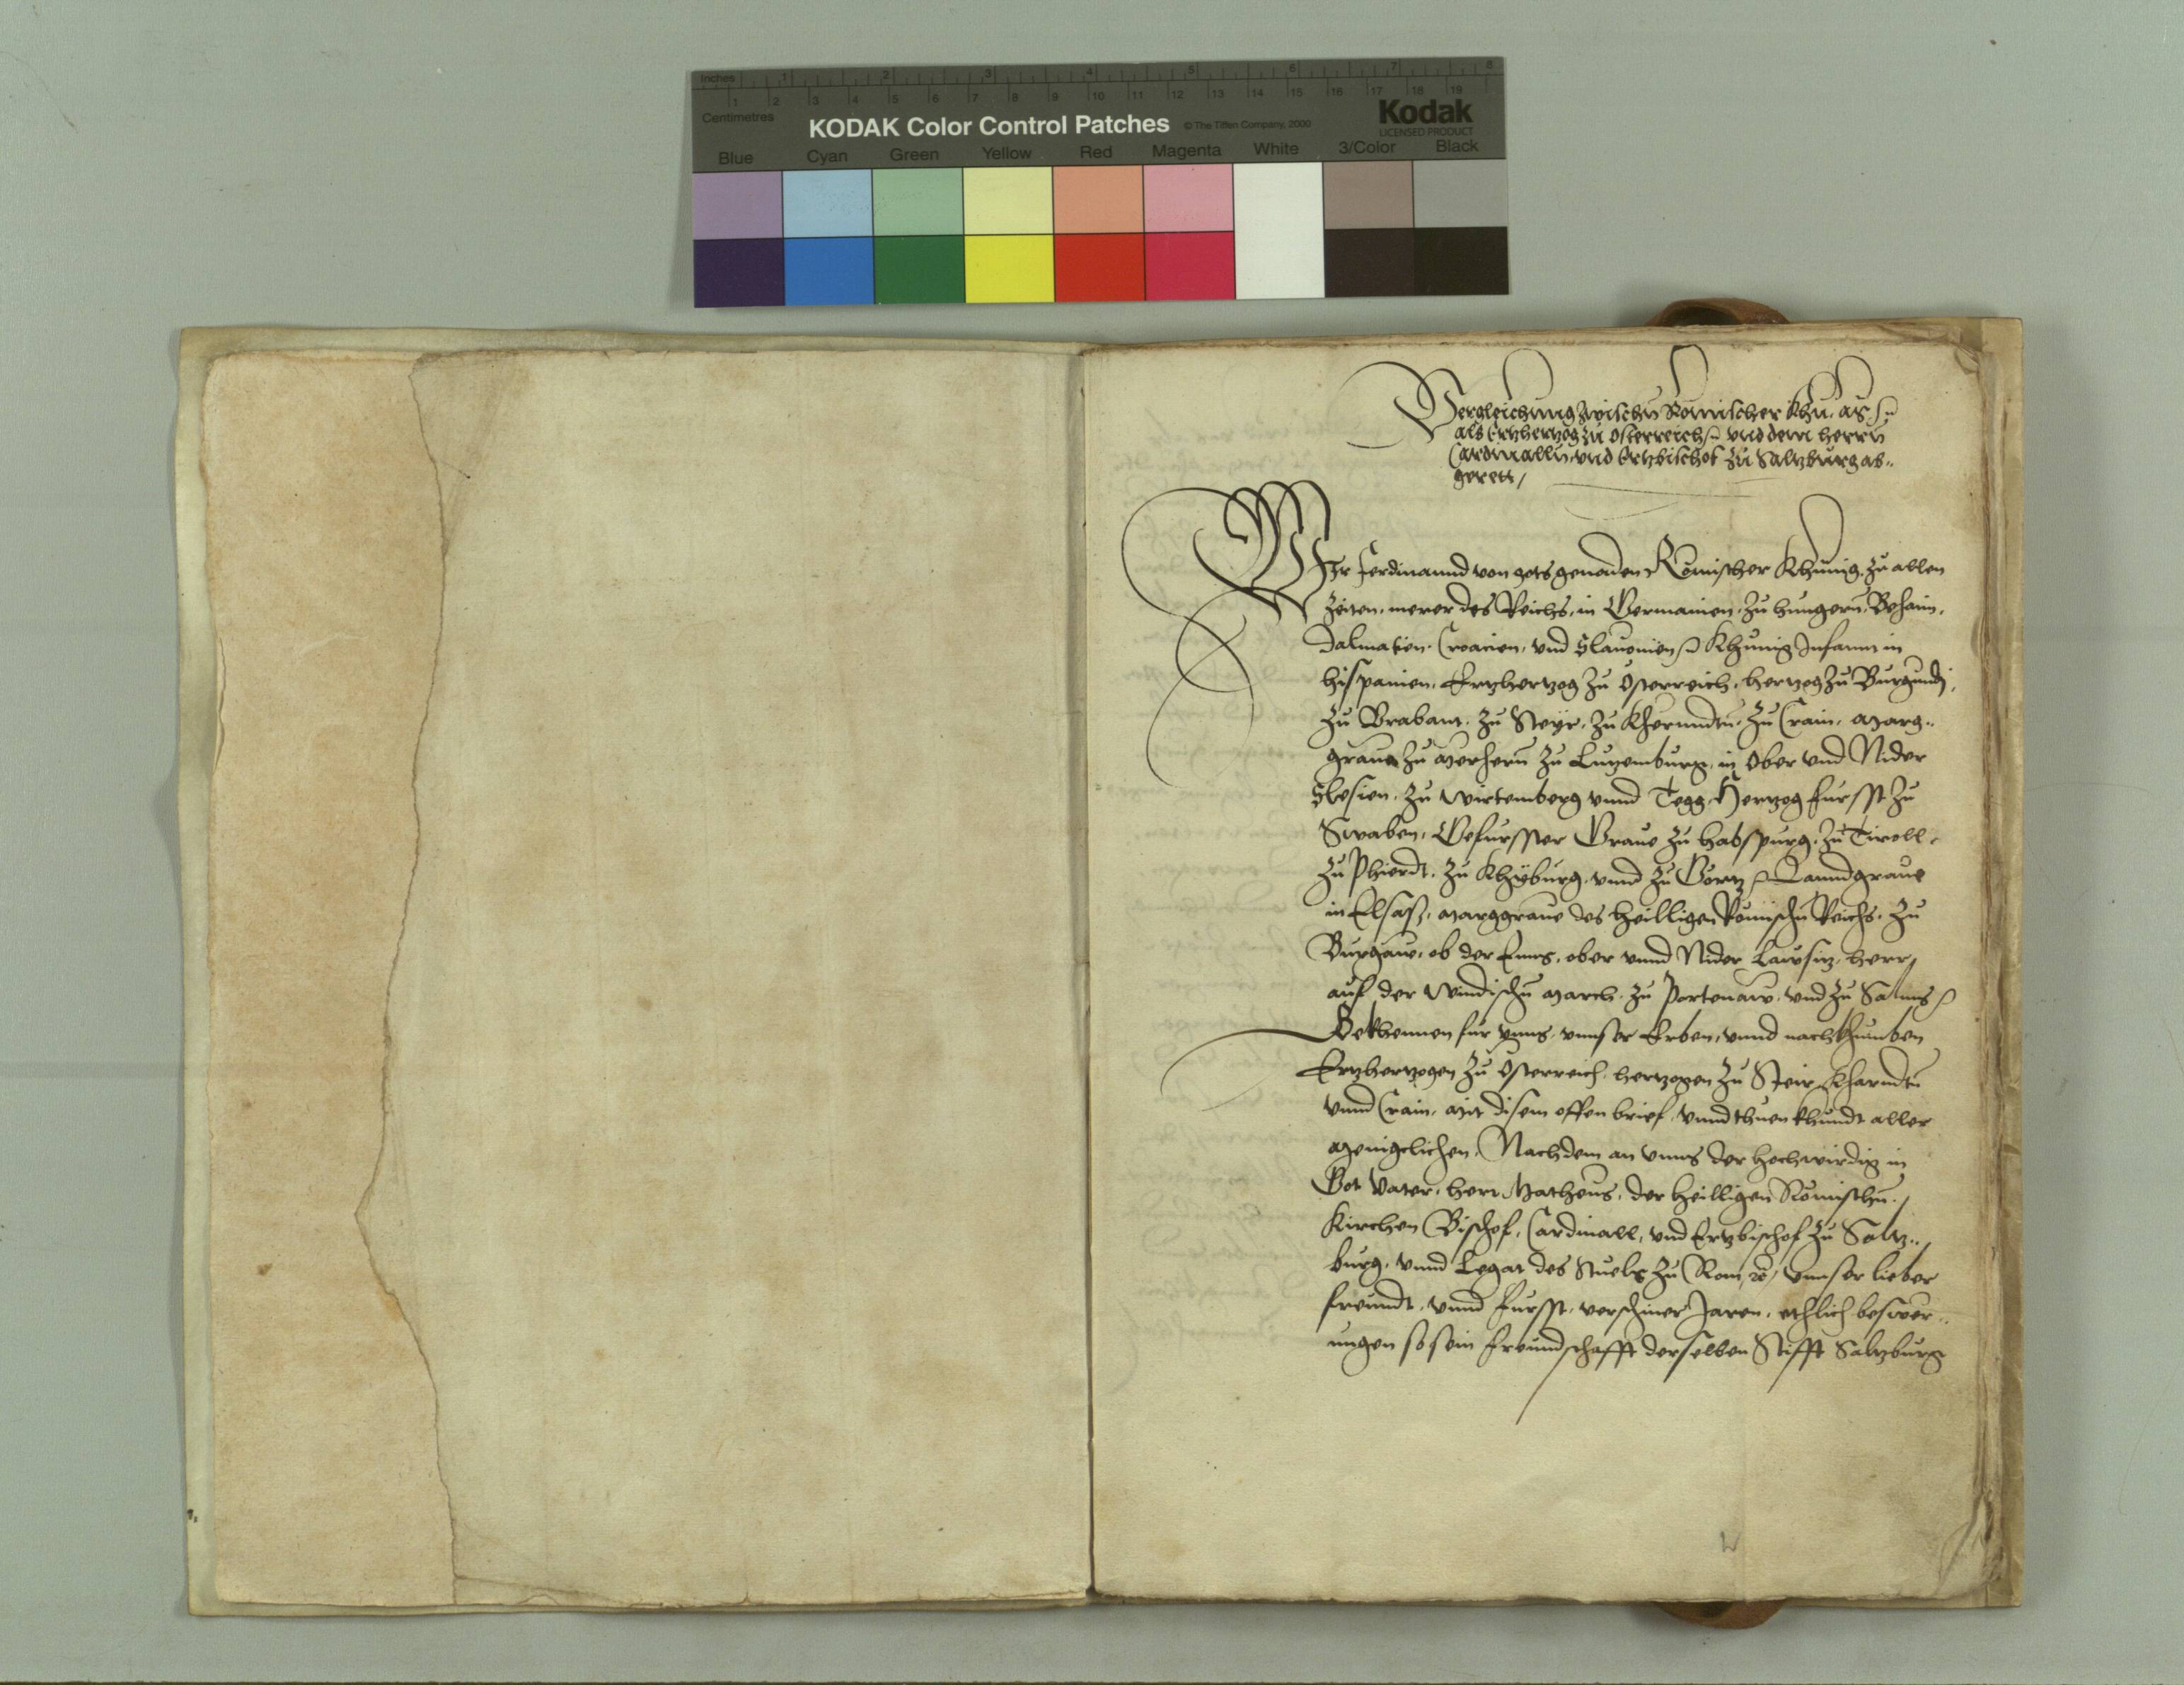 Inches 1 2 3 4 5 6 7 8
1 2 3 4 5 6 7 8 9 10 11 12 13 14 15 16 17 18 19
Centimetres
KODAK Color Control Patches © The Tiffen Company, 2000 Kodak
LICENSED PRODUCT
Blue Cyan Green Yellow Red Magenta White 3/Color Black
Vergleichung zwischn Römischer Khu. Mt.
als Ertzhertzog zu Osterreich und dem herrn
Cardinalln und Ertzbischof zu Saltzburg ab¬
gerett/
Wir Ferdinannd von gots genaden Römischer Khunig, zu allen
Zeiten, merer des Reichs, in Germanien, zu hungern, Behaim,
Dalmatien, Croacien, und Slauonien Khunig Infannt in
hispanien, Ertzhertzog zu Osterreich, hertzog zu Burgundj,
zu Brabant, zu Steyr, zu Kherndtn, zu Crain, Marg¬
graue zu Merhern zu Lutzemburg, in Ober und Nider
Slesien, zu Wirtemberg unnd Tegg, Hertzog, furst zu
Swaben, Gefurster Graue zu habspurg, zu Tiroll,
zu Phierdt, zu Khyburg, unnd zu Gortz Lanndgraue
in Elsass, Marggraue des heilligen Römischn Reichs, zu
Burgaw, ob der Enns, ober unnd Nider Lawsitz, herr
auf der Windischn March, zu Portenaw, und zu Salins
Bekhennen fur unns, unnser Erben, unnd nachkhumben
Ertzhertzogen zu Osterreich, hertzogen zu Steir, Kharndtn
unnd Crain, Mit disem offen brief, unnd thuen khundt aller
Menigclichen, Nachdem an unns der hochwirdig in
Got Vater, herr Matheus, der heilligen Römischn
Kirchen Bischof, Cardinall, und Ertzbischof zu Saltz¬
burg, unnd Legat des Stuels zu Rom, etc, unnser lieber
freundt, unnd furst, verschiner Jaren, etlich beswer¬
ungen so sein freundschafft derselben Stifft Saltzburg